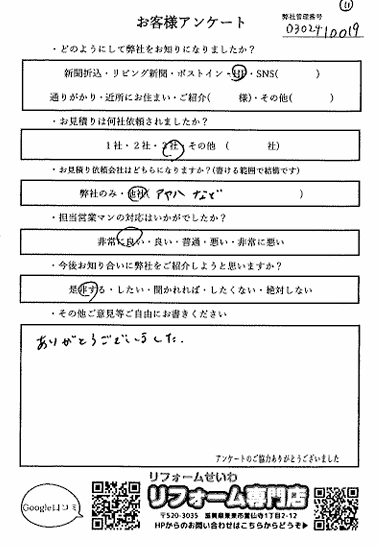 ⑪
お客様アンケート
弊社管理番号
0302410019
・どのようにして弊社をお知りになりましたか？
新聞折込・リビング新聞・ポストイン・HP・SNS(　　　)
通りがかり・近所にお住まい・ご紹介(　　　様)・その他(　　　)
・お見積りは何社依頼されましたか？
1社・2社・3社・その他　(　　　社)
・お見積り依頼会社はどちらになりますか？(書ける範囲で結構です)
弊社のみ・他社( アヤハ など　　　)
・担当営業マンの対応はいかがでしたか？
非常に良い・良い・普通・悪い・非常に悪い
・今後お知り合いに弊社をご紹介しようと思いますか？
是非する・したい・聞かれれば・したくない・絶対しない
・その他ご意見等ご自由にお書きください
ありがとうございました.
アンケートのご協力ありがとうございました
Google口コミ
リフォームせいわ
リフォーム専門店
〒520-3035 滋賀県栗東市霊仙寺1丁目2-12
HPからのお問い合わせはこちらからどうぞ▶